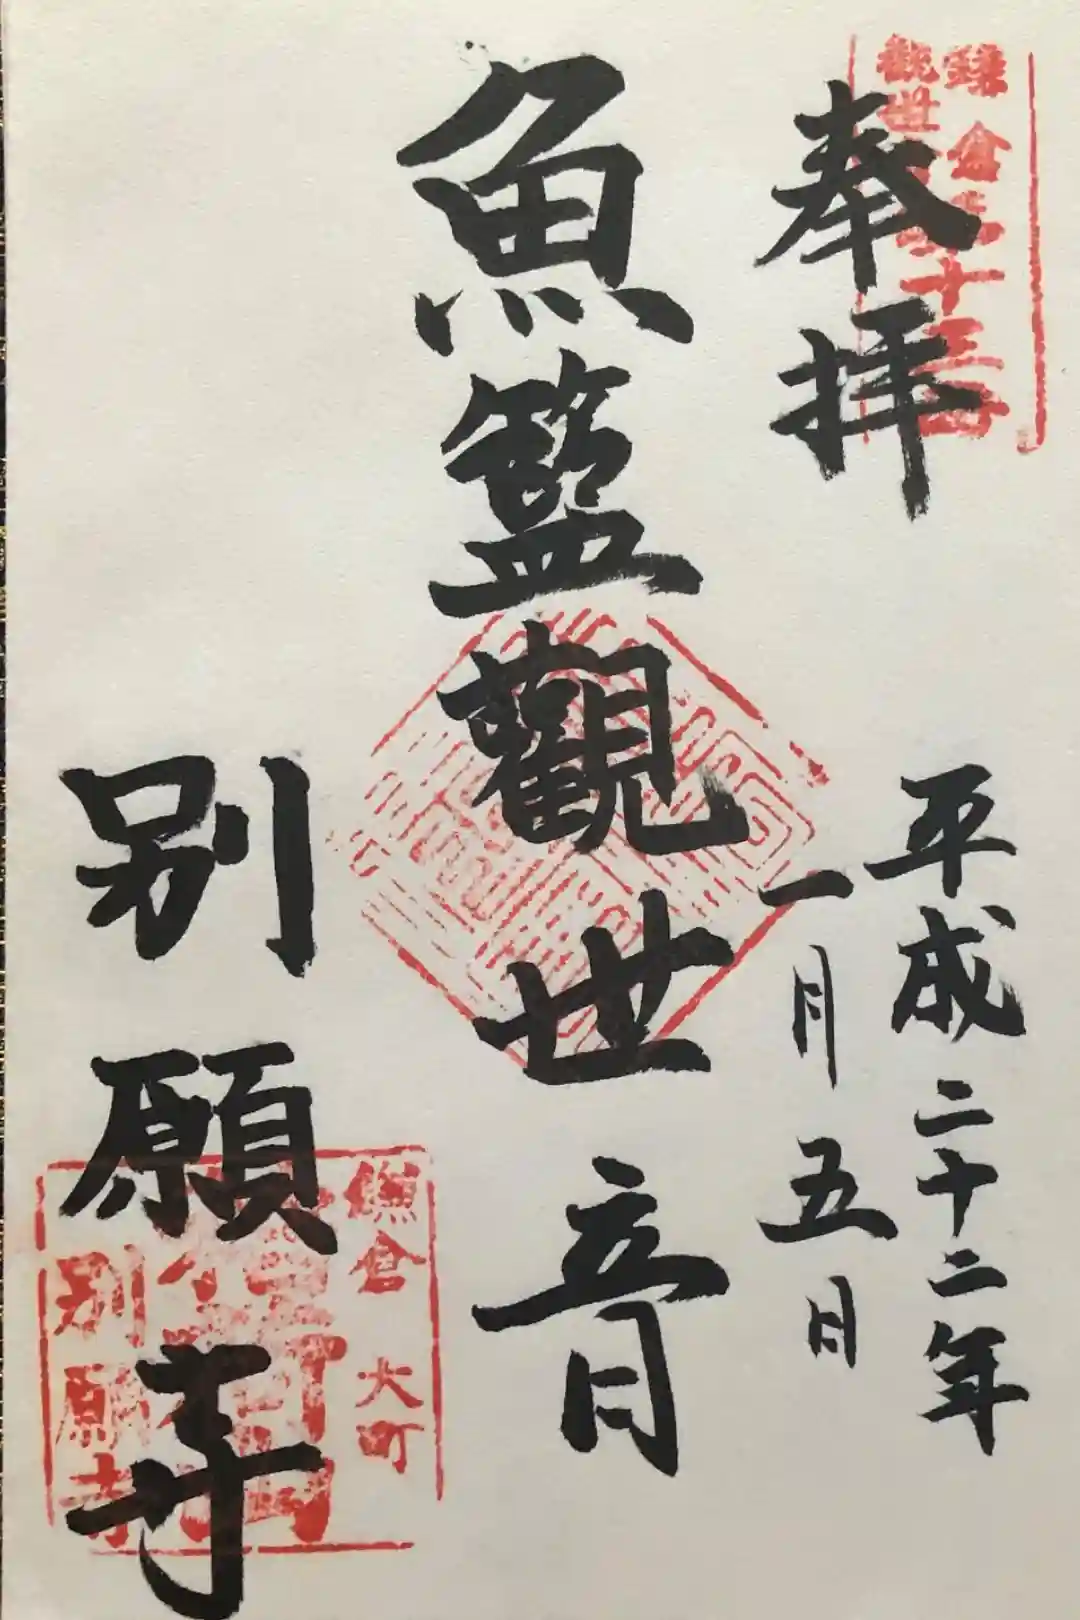 奉拝
平成二十二年
一月五日
魚籃觀世音
別願寺
鎌倉三十三
觀世
鎌倉 大町
別願寺